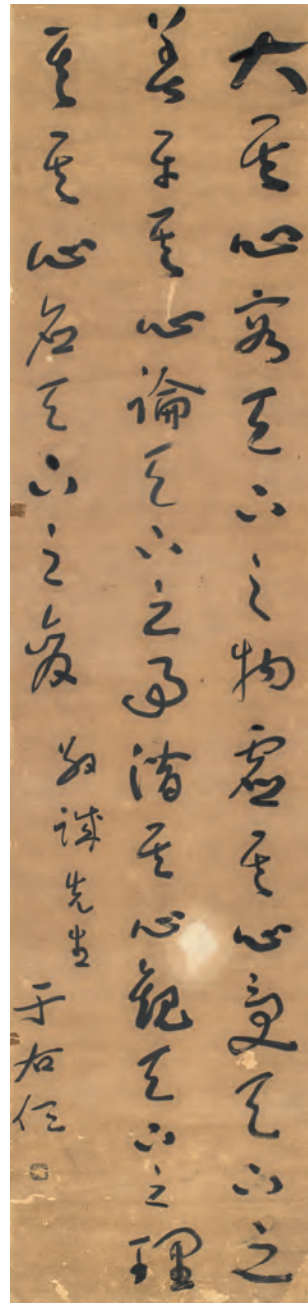 大其心容天下之物虛其心受天下之
善平其心論天下之事潛其心觀天下之理
定其心應天下之變
誠先生
于右任